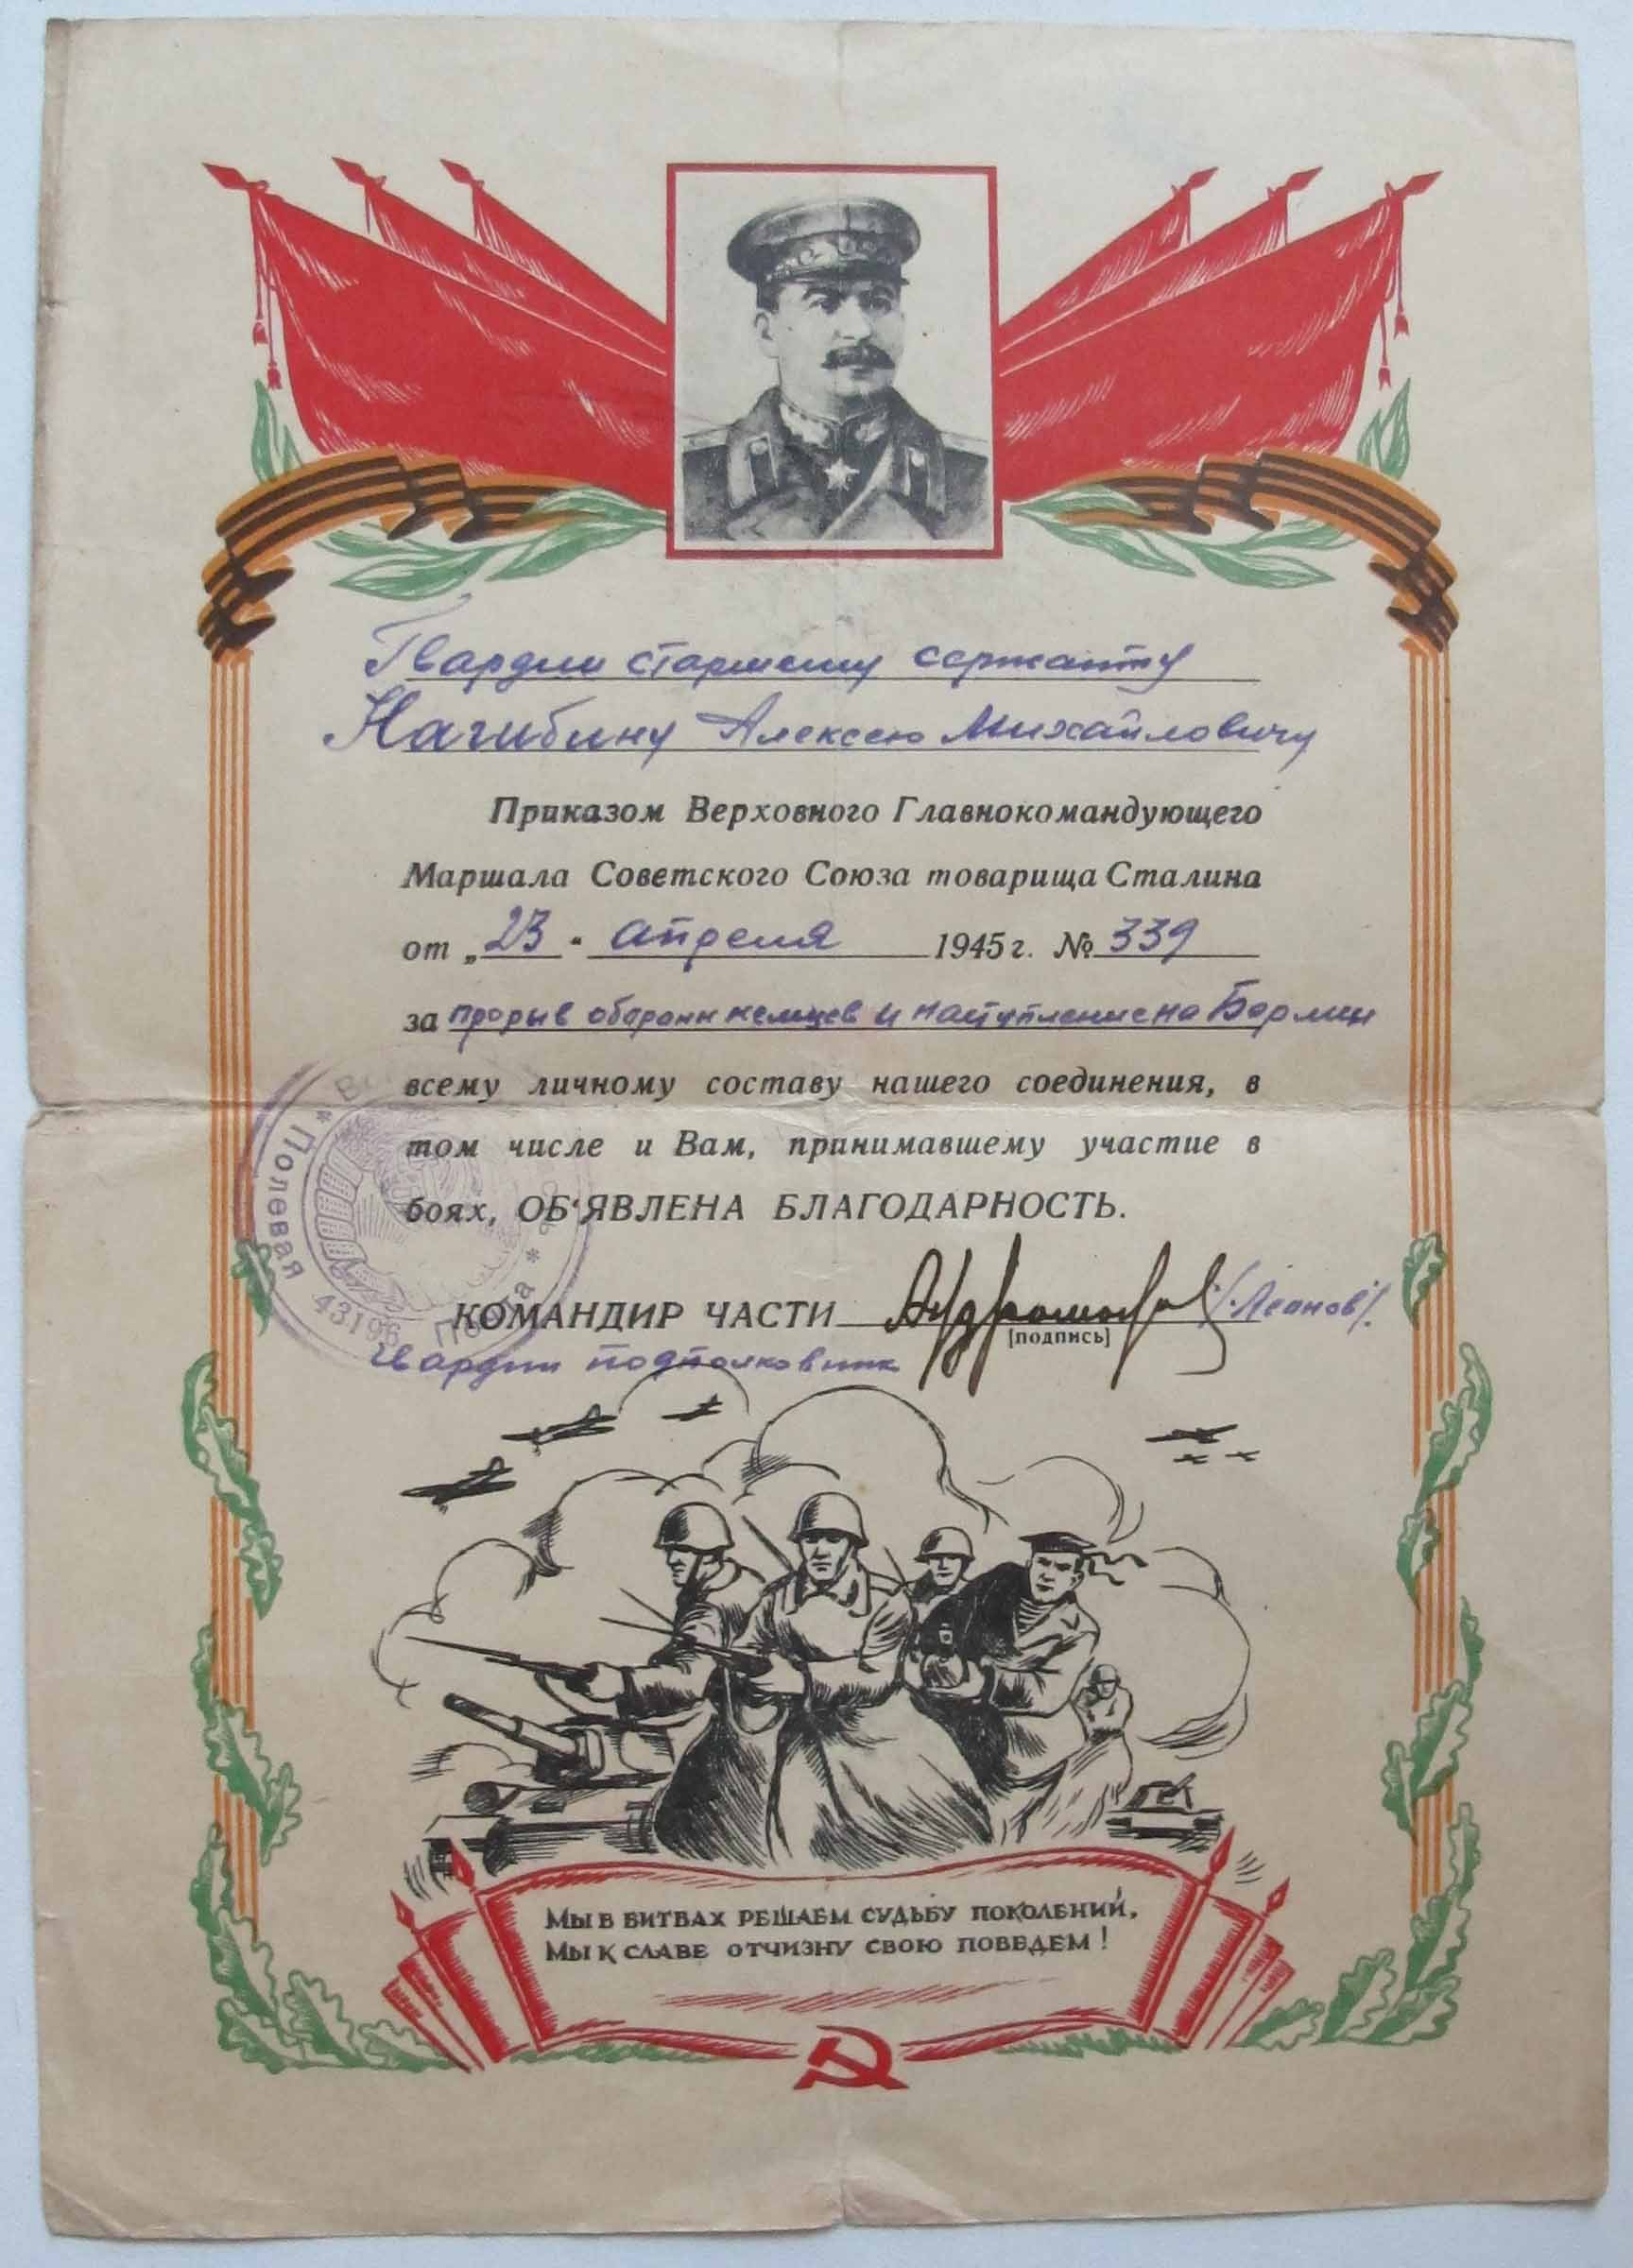 Гвардии старшему сержанту
Нагибину Алексею Михайловичу
Приказом Верховного Главнокомандующего
Маршала Советского Союза товарища Сталина
от „23" апреля 1945 г. № 339
за прорыв обороны немцев и наступление на Берлин
всему личному составу нашего соединения, в
том числе и Вам, принимавшему участие в
боях, ОБ‘ЯВЛЕНА БЛАГОДАРНОСТЬ.
* Полевая Почта * 43196
КОМАНДИР ЧАСТИ /Леонов/.
[подпись]
гвардии подполковник
МЫ В БИТВАХ РЕШАЕМ СУДЬБУ ПОКОЛЕНИЙ,
МЫ К СЛАВЕ ОТЧИЗНУ СВОЮ ПОВЕДЕМ!